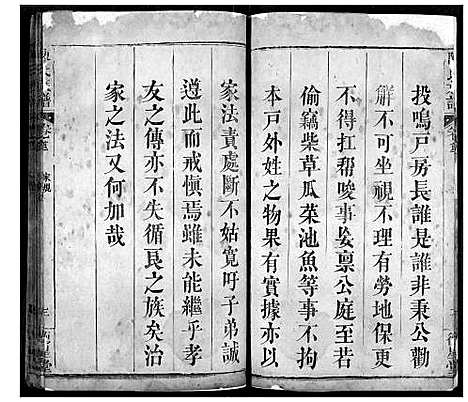 投鳴戶房長誰是誰非秉公勸
解不可坐視不理有勞地保更
不得扛幇唆事妄禀公庭至若
偷竊柴草瓜菜池魚等事不拘
本戶外姓之物果有實據亦以
家法責處斷不姑寬吁子弟誠
遵此而戒慎焉雖未能繼乎孝
友之傳亦不失循良之族矣治
家之法又何加哉
家規